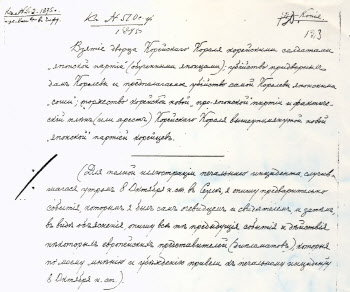 Кз № 5ДО-ф
1895 г.
Копія
123
Взятіе дворца Корейскаго Короля корейскими солдатами
японской партіи (обученными японцами); убійство придворныхъ
дамъ Королевы и предполагаемое убійство самой Королевы японскими
соши; торжество корейской новой, про-японской партіи и фактиче-
скій плѣнъ (или арестъ) Корейскаго Короля вышеупомянутой новой
японской партіей корейцевъ.
(Для полной иллюстраціи печальнаго инцидента, случив-
шагося утромъ 8 Октября н. ст. въ Сеулѣ, я опишу предварительно
событія, которымъ я былъ самъ очевидцемъ и свидѣтелемъ, а затѣмъ,
въ видѣ объясненія опишу всѣ тѣ предыдущія событія и дѣйствія
нѣкоторыхъ европейскихъ представителей (дипломатовъ), которыя
по моему мнѣнію и убѣжденію привели къ печальному инциденту
8 Октября н. ст.).